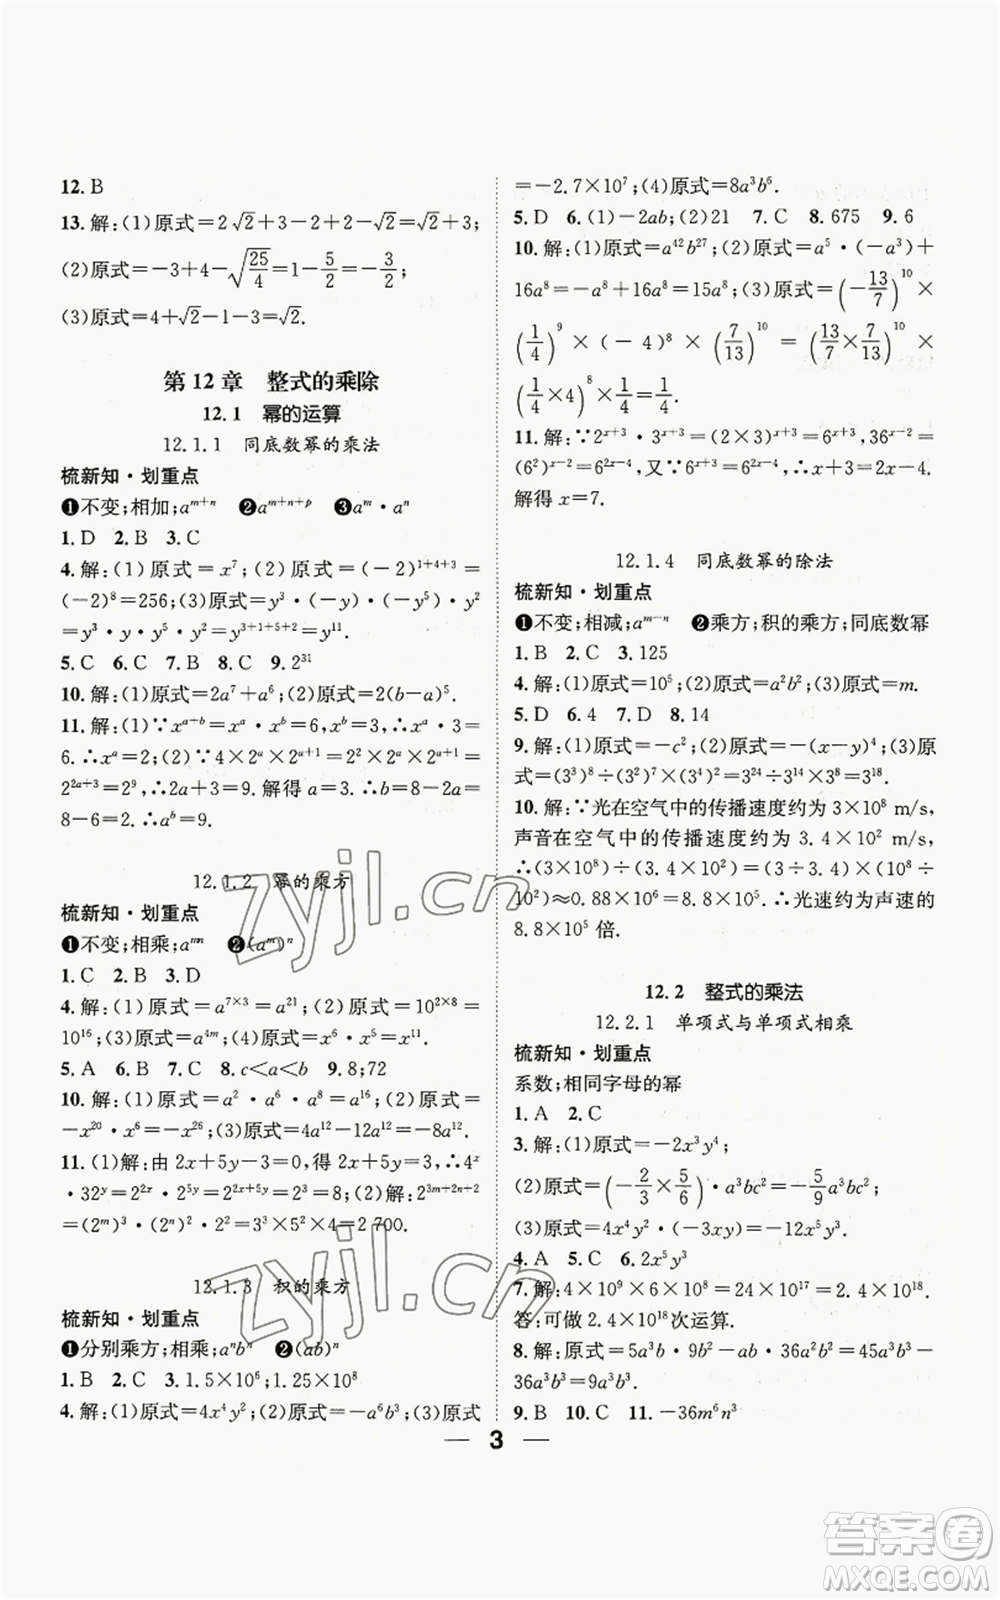 12. B
13. 解:(1)原式=2√2+3-2+2-√2=√2+3;
(2)原式=-3+4-√(25/4)=1-5/2=-3/2;
(3)原式=4+√2-1-3=√2.
第12章 整式的乘除
12.1 幂的运算
12.1.1 同底数幂的乘法
梳新知·划重点
❶不变;相加;aᵐ⁺ⁿ ❷aᵐ⁺ⁿ⁺ᵖ ❸aᵐ·aⁿ
1. D 2. B 3. C
4. 解:(1)原式=x⁷;(2)原式=(-2)¹⁺⁴⁺³=
(-2)⁸=256;(3)原式=y³·(-y)·(-y)⁵·y²=
y³·y·y⁵·y²=y³⁺¹⁺⁵⁺²=y¹¹.
5. C 6. C 7. B 8. C 9. 2³¹
10. 解:(1)原式=2a⁷+a⁶;(2)原式=2(b-a)⁵.
11. 解:(1)∵xᵃ⁺ᵇ=xᵃ·xᵇ=6,xᵇ=3,∴xᵃ·3=
6.∴xᵃ=2;(2)∵4×2ᵃ×2ᵃ⁺¹=2²×2ᵃ×2ᵃ⁺¹=
2²ᵃ⁺³=2⁹,∴2a+3=9.解得a=3.∴b=8-2a=
8-6=2.∴aᵇ=9.
12.1.2 幂的乘方
梳新知·划重点
❶不变;相乘;aᵐⁿ ❷(aᵐ)ⁿ
1. C 2. B 3. D
4. 解:(1)原式=a⁷ˣ³=a²¹;(2)原式=10²ˣ⁸=
10¹⁶;(3)原式=a⁴ᵐ;(4)原式=x⁶·x⁵=x¹¹.
5. A 6. B 7. C 8. c<a<b 9. 8;72
10. 解:(1)原式=a²·a⁶·a⁸=a¹⁶;(2)原式=
-x²⁰·x⁶=-x²⁶;(3)原式=4a¹²-12a¹²=-8a¹².
11. (1)解:由2x+5y-3=0,得2x+5y=3,∴4ˣ
·32ʸ=2²ˣ·2⁵ʸ=2²ˣ⁺⁵ʸ=2³=8;(2)解:2³ᵐ⁺²ⁿ⁺²
=(2ᵐ)³·(2ⁿ)²·2²=3³×5²×2²=2 700.
12.1.3 积的乘方
梳新知·划重点
❶分别乘方;相乘;aⁿbⁿ ❷(ab)ⁿ
1. B 2. C 3. 1.5×10⁶;1.25×10⁸
4. 解:(1)原式=4x⁴y²;(2)原式=-a⁶b³;(3)原式
=-2.7×10⁷;(4)原式=8a³b⁶.
5. D 6. (1)-2ab;(2)21 7. C 8. 675 9. 6
10. 解:(1)原式=a⁴²b²⁷;(2)原式=a⁵·(-a³)+
16a⁸=-a⁸+16a⁸=15a⁸;(3)原式=(-13/7)¹⁰×
(1/4)⁹×(-4)⁸×(7/13)¹⁰=(13/7×7/13)¹⁰×
(1/4×4)⁸×1/4=1/4.
11. 解:∵2ˣ⁺³·3ˣ⁺³=(2×3)ˣ⁺³=6ˣ⁺³,36ˣ⁻²=
(6²)ˣ⁻²=6²ˣ⁻⁴,又∵6ˣ⁺³=6²ˣ⁻⁴,∴x+3=2x-4.
解得x=7.
12.1.4 同底数幂的除法
梳新知·划重点
❶不变;相减;aᵐ⁻ⁿ ❷乘方;积的乘方;同底数幂
1. B 2. C 3. 125
4. 解:(1)原式=10⁵;(2)原式=a²b²;(3)原式=m.
5. D 6. 4 7. D 8. 14
9. 解:(1)原式=-c²;(2)原式=-(x-y)⁴;(3)原
式=(3³)⁵×(3²)³÷3³=3¹⁵×3⁶÷3³=3¹⁸.
10. 解:∵光在空气中的传播速度约为3×10⁸ m/s,
声音在空气中的传播速度约为3.4×10² m/s,
∴(3×10⁸)÷(3.4×10²)=(3÷3.4)×(10⁸÷
10²)≈0.88×10⁶=8.8×10⁵.∴光速约为声速的
8.8×10⁵倍.
12.2 整式的乘法
12.2.1 单项式与单项式相乘
梳新知·划重点
系数;相同字母的幂
1. A 2. C
3. 解:(1)原式=-2x³y⁴;
(2)原式=(-2/3×5/6)·a³bc²=-5/9a³bc²;
(3)原式=4x⁴y²·(-3xy)=-12x⁵y³.
4. A 5. C 6. 2x⁵y³
7. 解:4×10⁹×6×10⁸=24×10¹⁷=2.4×10¹⁸.
答:可做2.4×10¹⁸次运算.
8. 解:原式=5a³b·9b²-ab·36a²b²=45a³b³-
36a³b³=9a³b³.
9. B 10. C 11. -36m⁶n³
3
zyjl.cn
zyjl.cn
答案圈
MXQE.COM